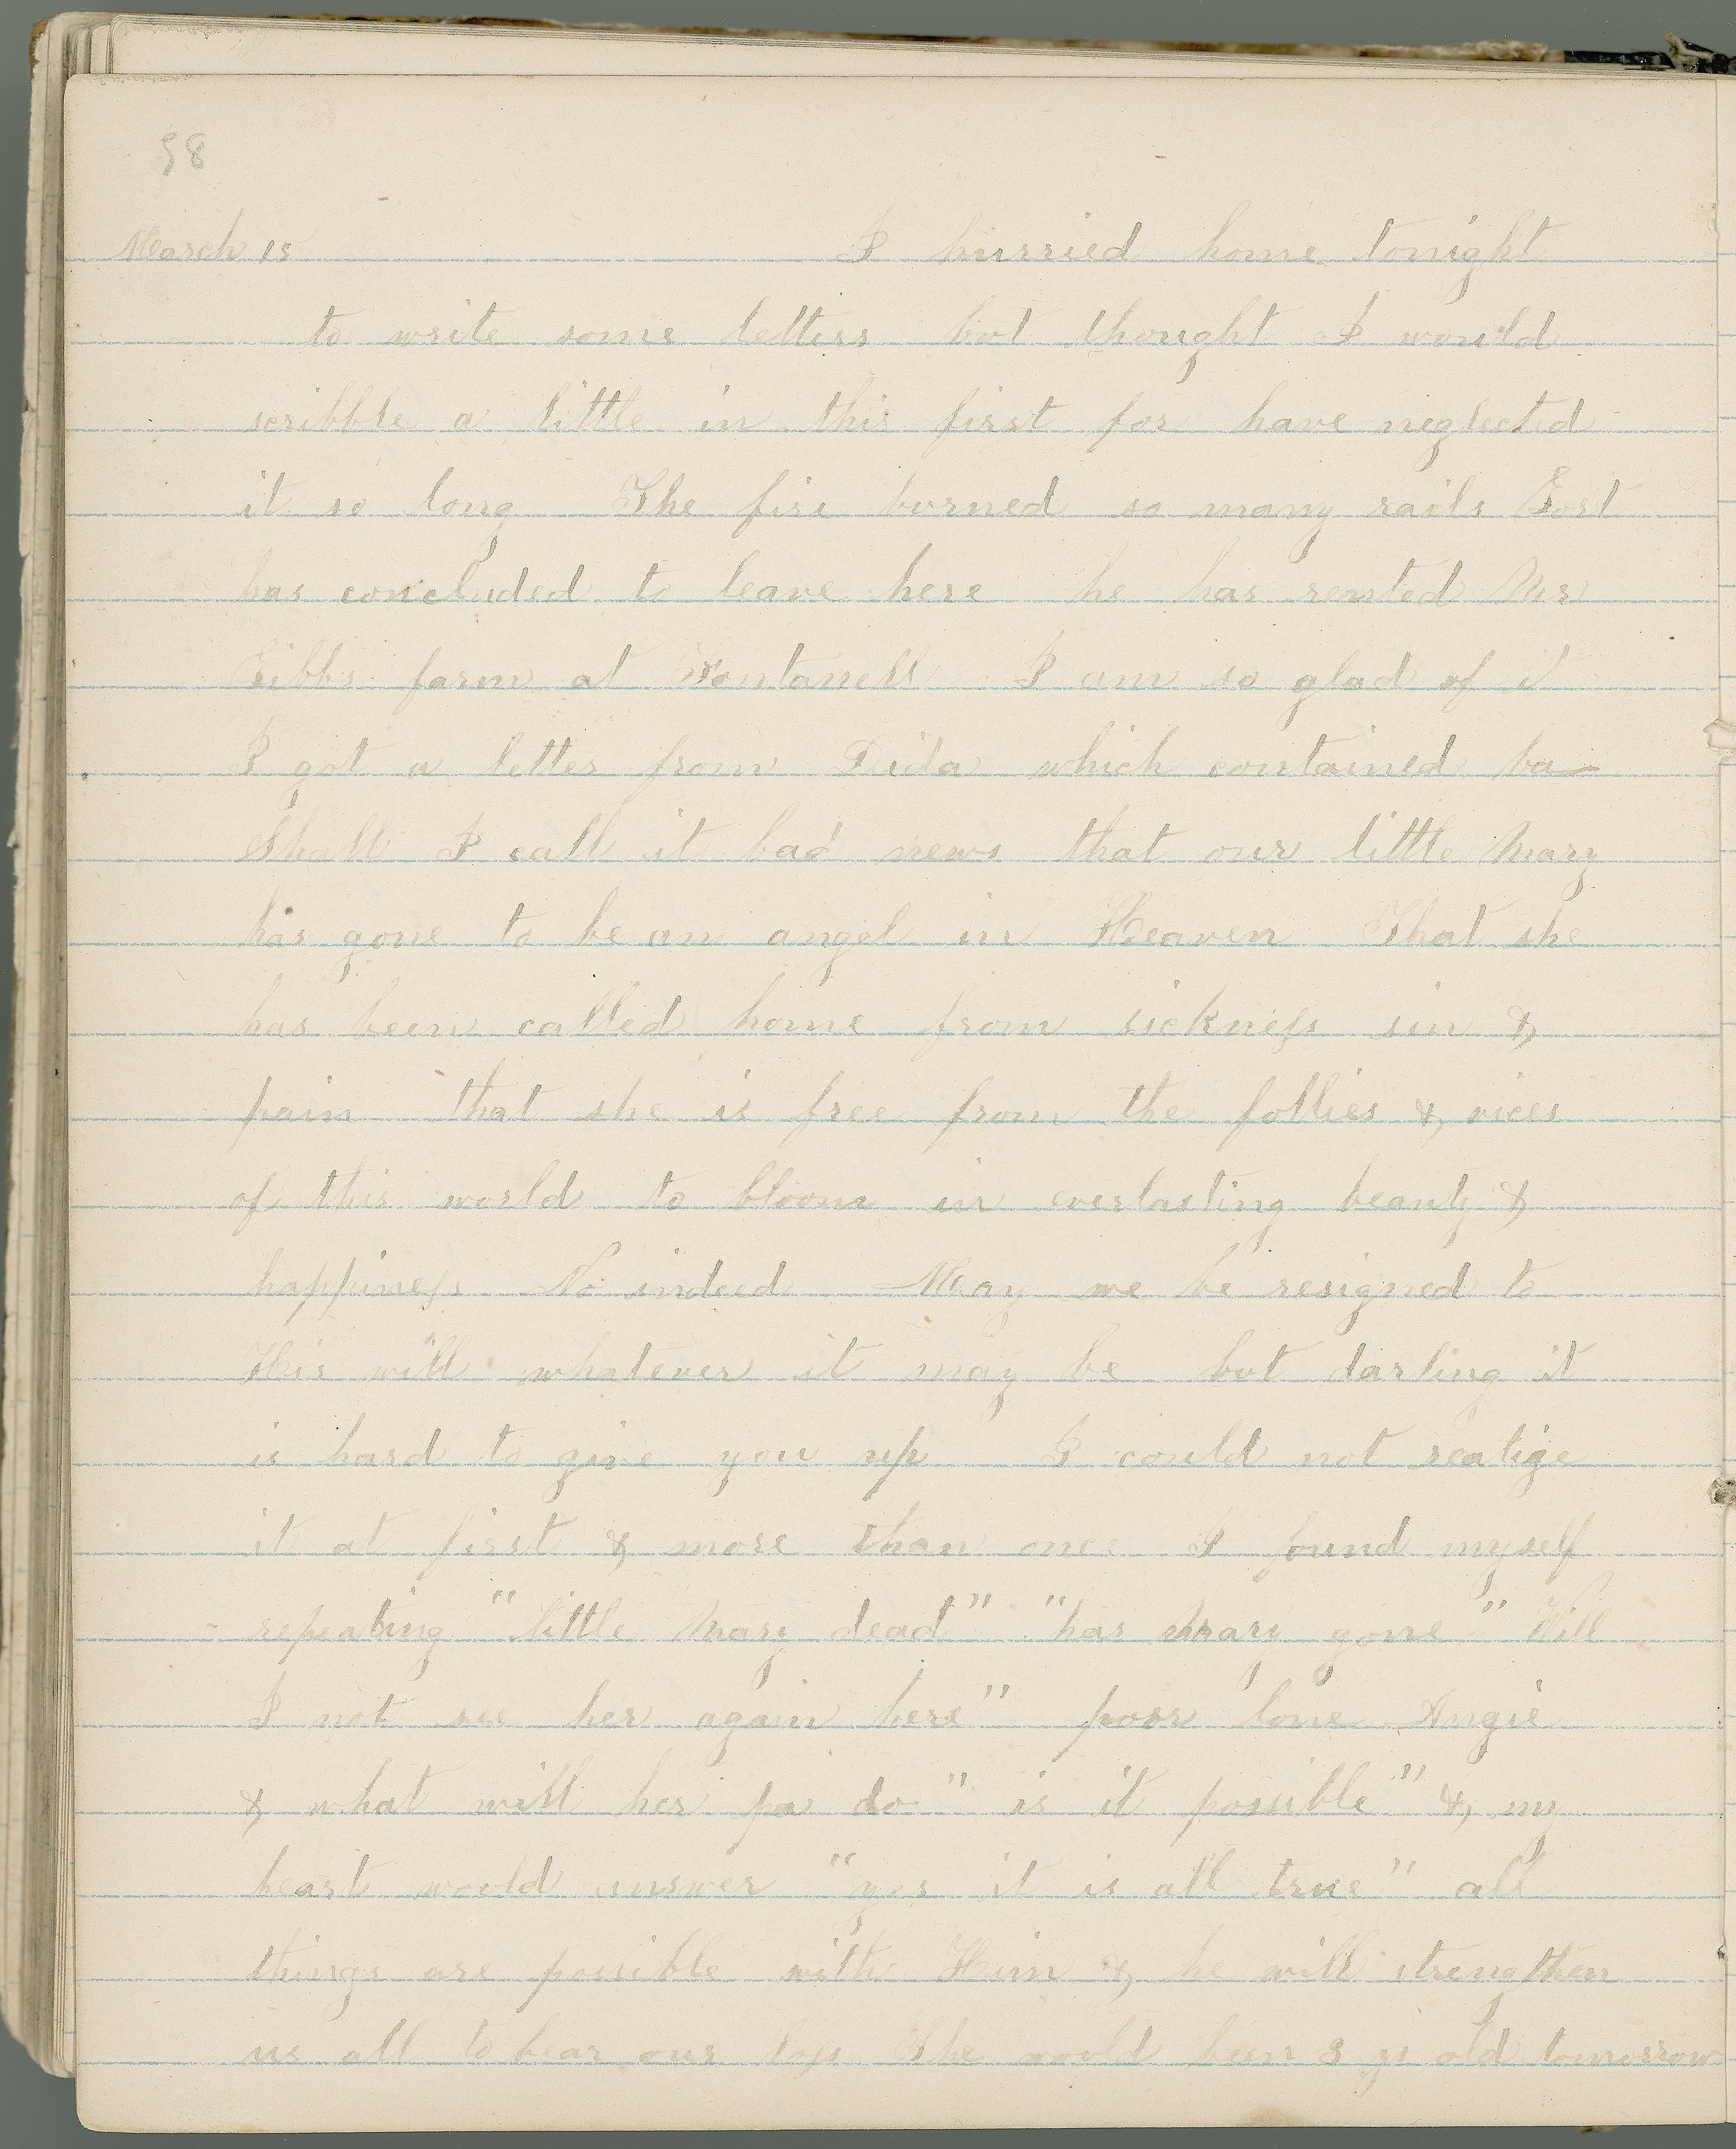 58
March 15 I hurried home tonight
to write some letters but thought I would
scribble a little in this first for have neglected
it so long The fire burned so many rails
has concluded to leave here he has rented Mrs
Gibbs farm at Fontanell I am so glad of it
I got a letter from Dida which contained ba
Shall I call it bad news that our little Mary
has gone to be an angel in Heaven That she
has been called home from sickness sin &
pain that she is free from the follies & vices
of this world to bloom in everlasting beauty &
happiness No indeed May we be resigned to
His will whatever it may be but darling it
is hard to give you up I could not realize
it at first & more than once I found myself
repeating "little Mary dead" "has Mary gone" Will
I not see her again here" poor lone Angie
& what will her pa do" is it possible" & my
heart would answer "yes it is all true" all
things are possible with Him & he will strengthen
us all to bear our loss She would been 3 ys old tomorrow